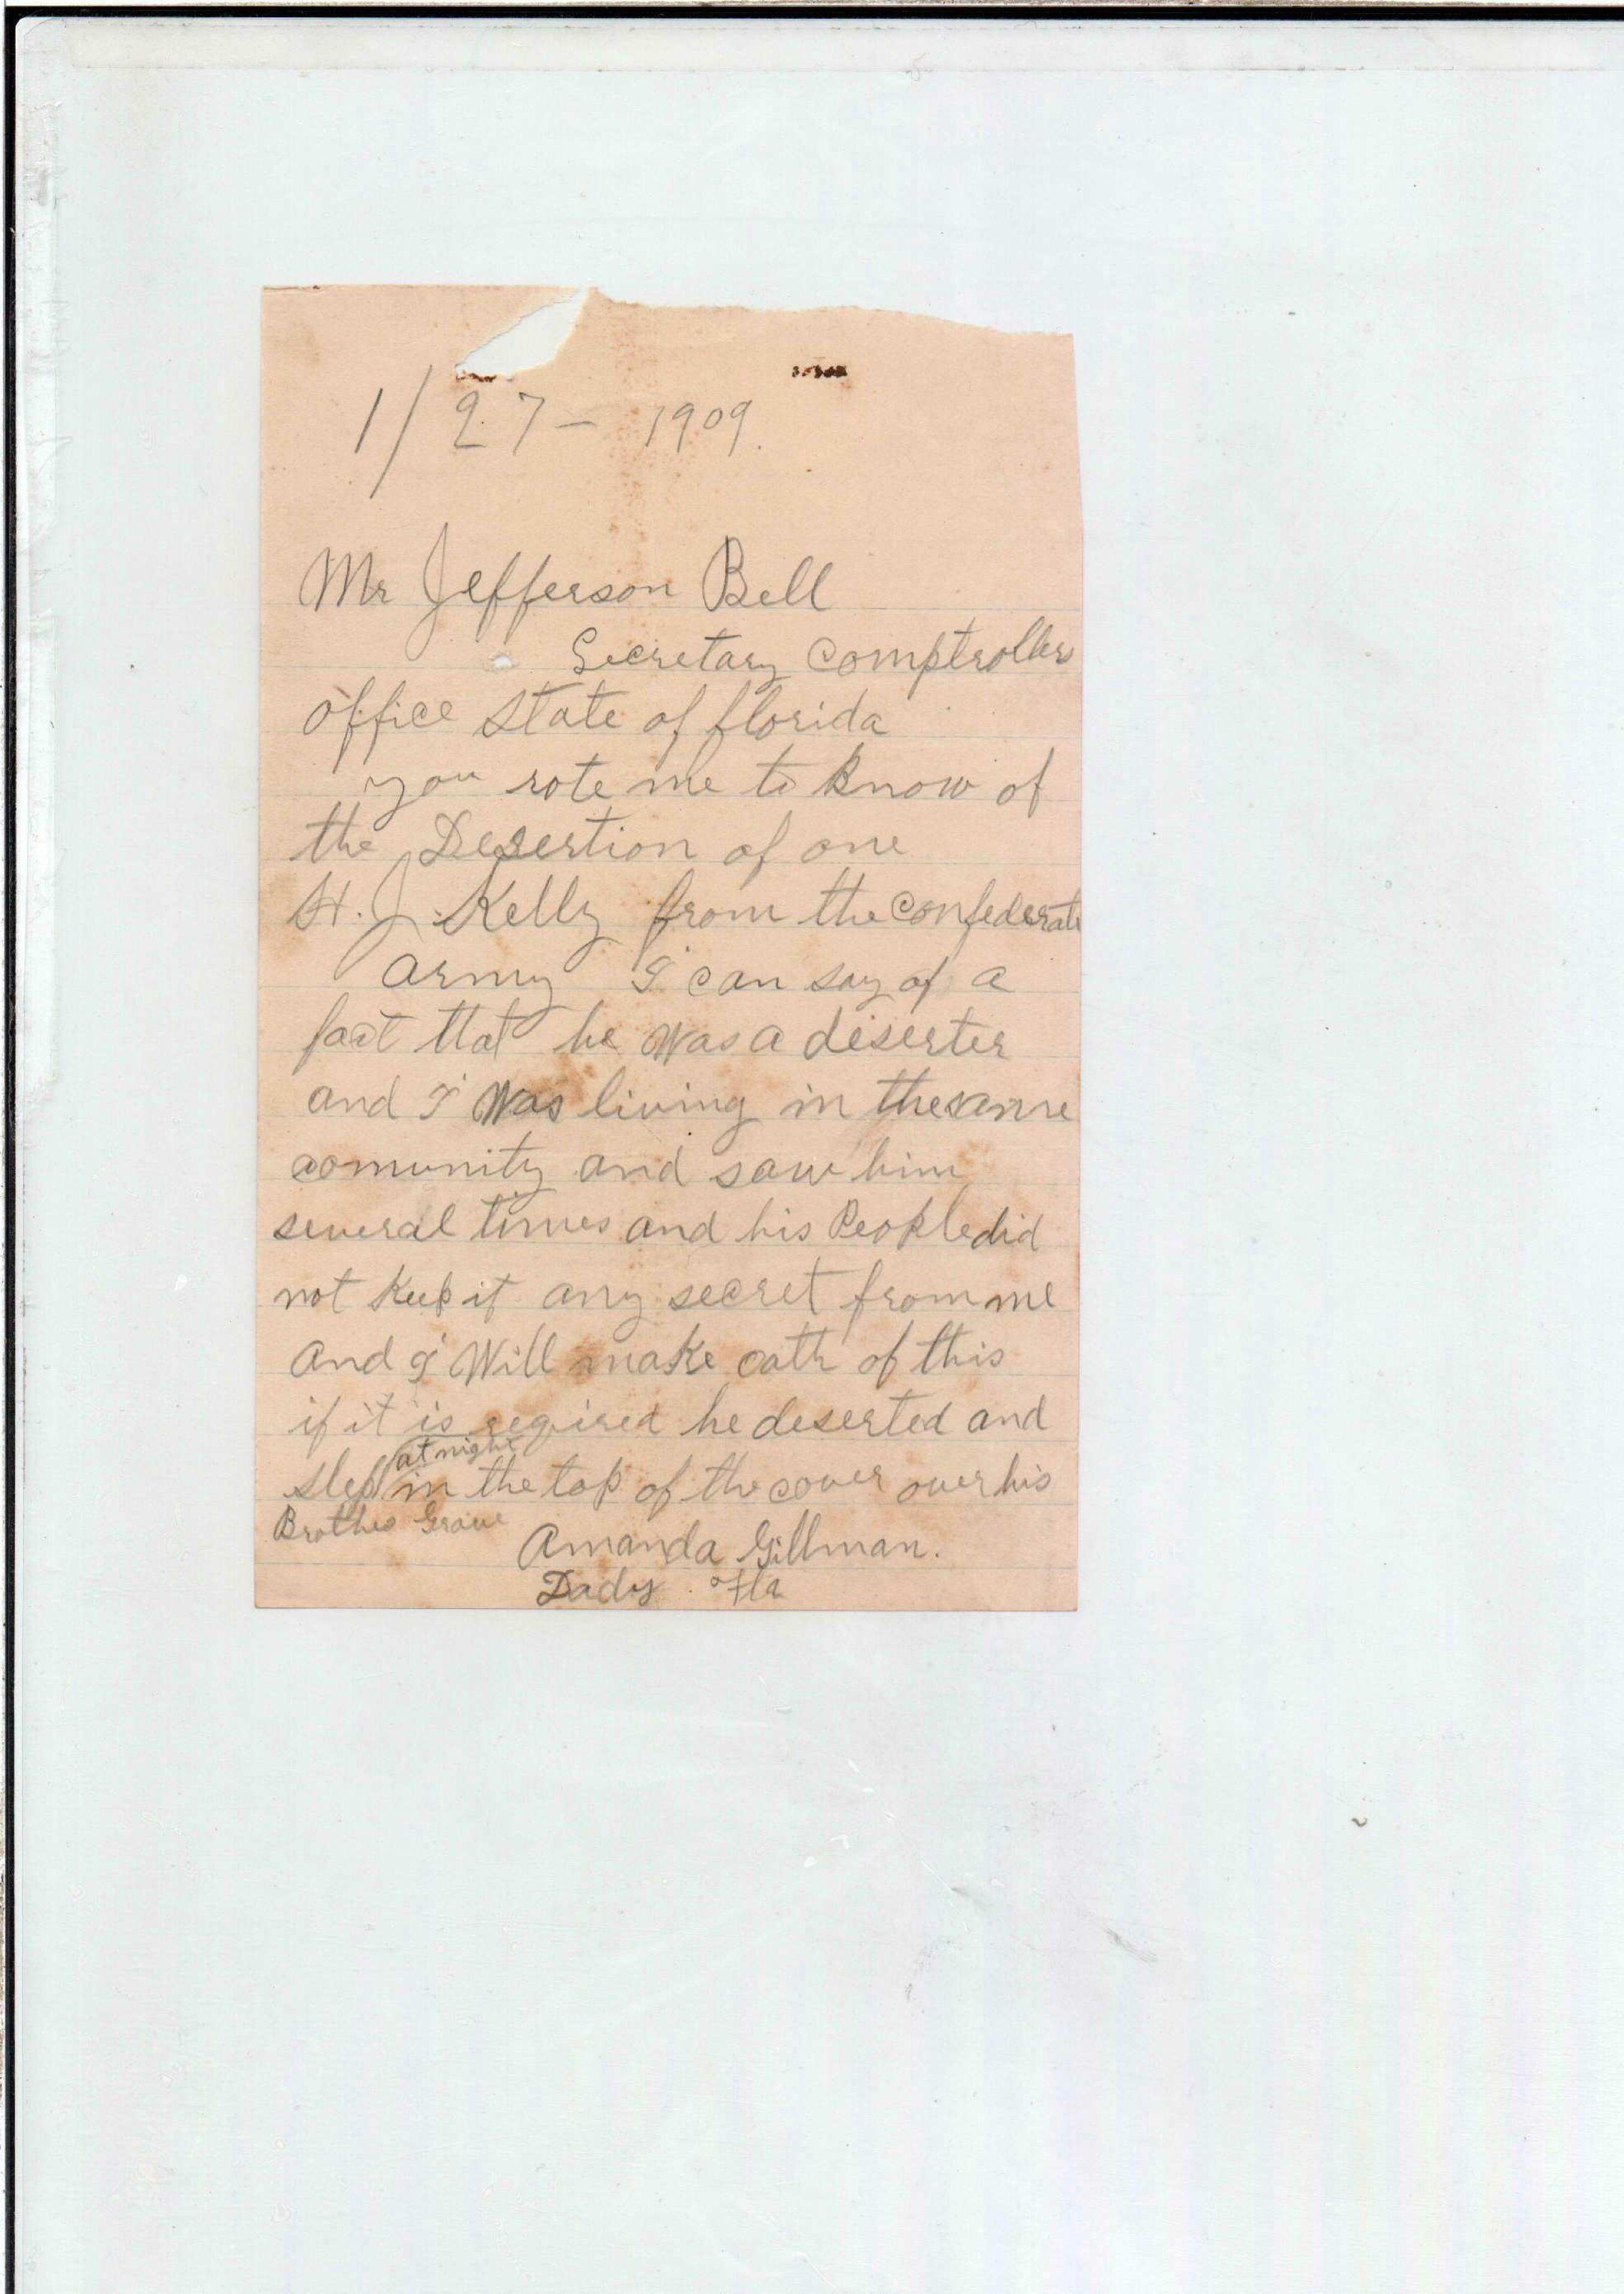 1/27- 1909.
Mr Jefferson Bell
Secretary Comptrollers
office State of florida
you rote me to know of
the Desertion of one
H. J. Kelly from the Confederate
army I can say of a
fact that he was a deserter
and I Was living in the same
comunity and saw him
several times and his People did
not Keep it any secret from me
and I Will make oath of this
if it is reqired he deserted and
at night
slep in the top of the cover over his
Brother Grave
Amanda Gillman.
Dady Fla